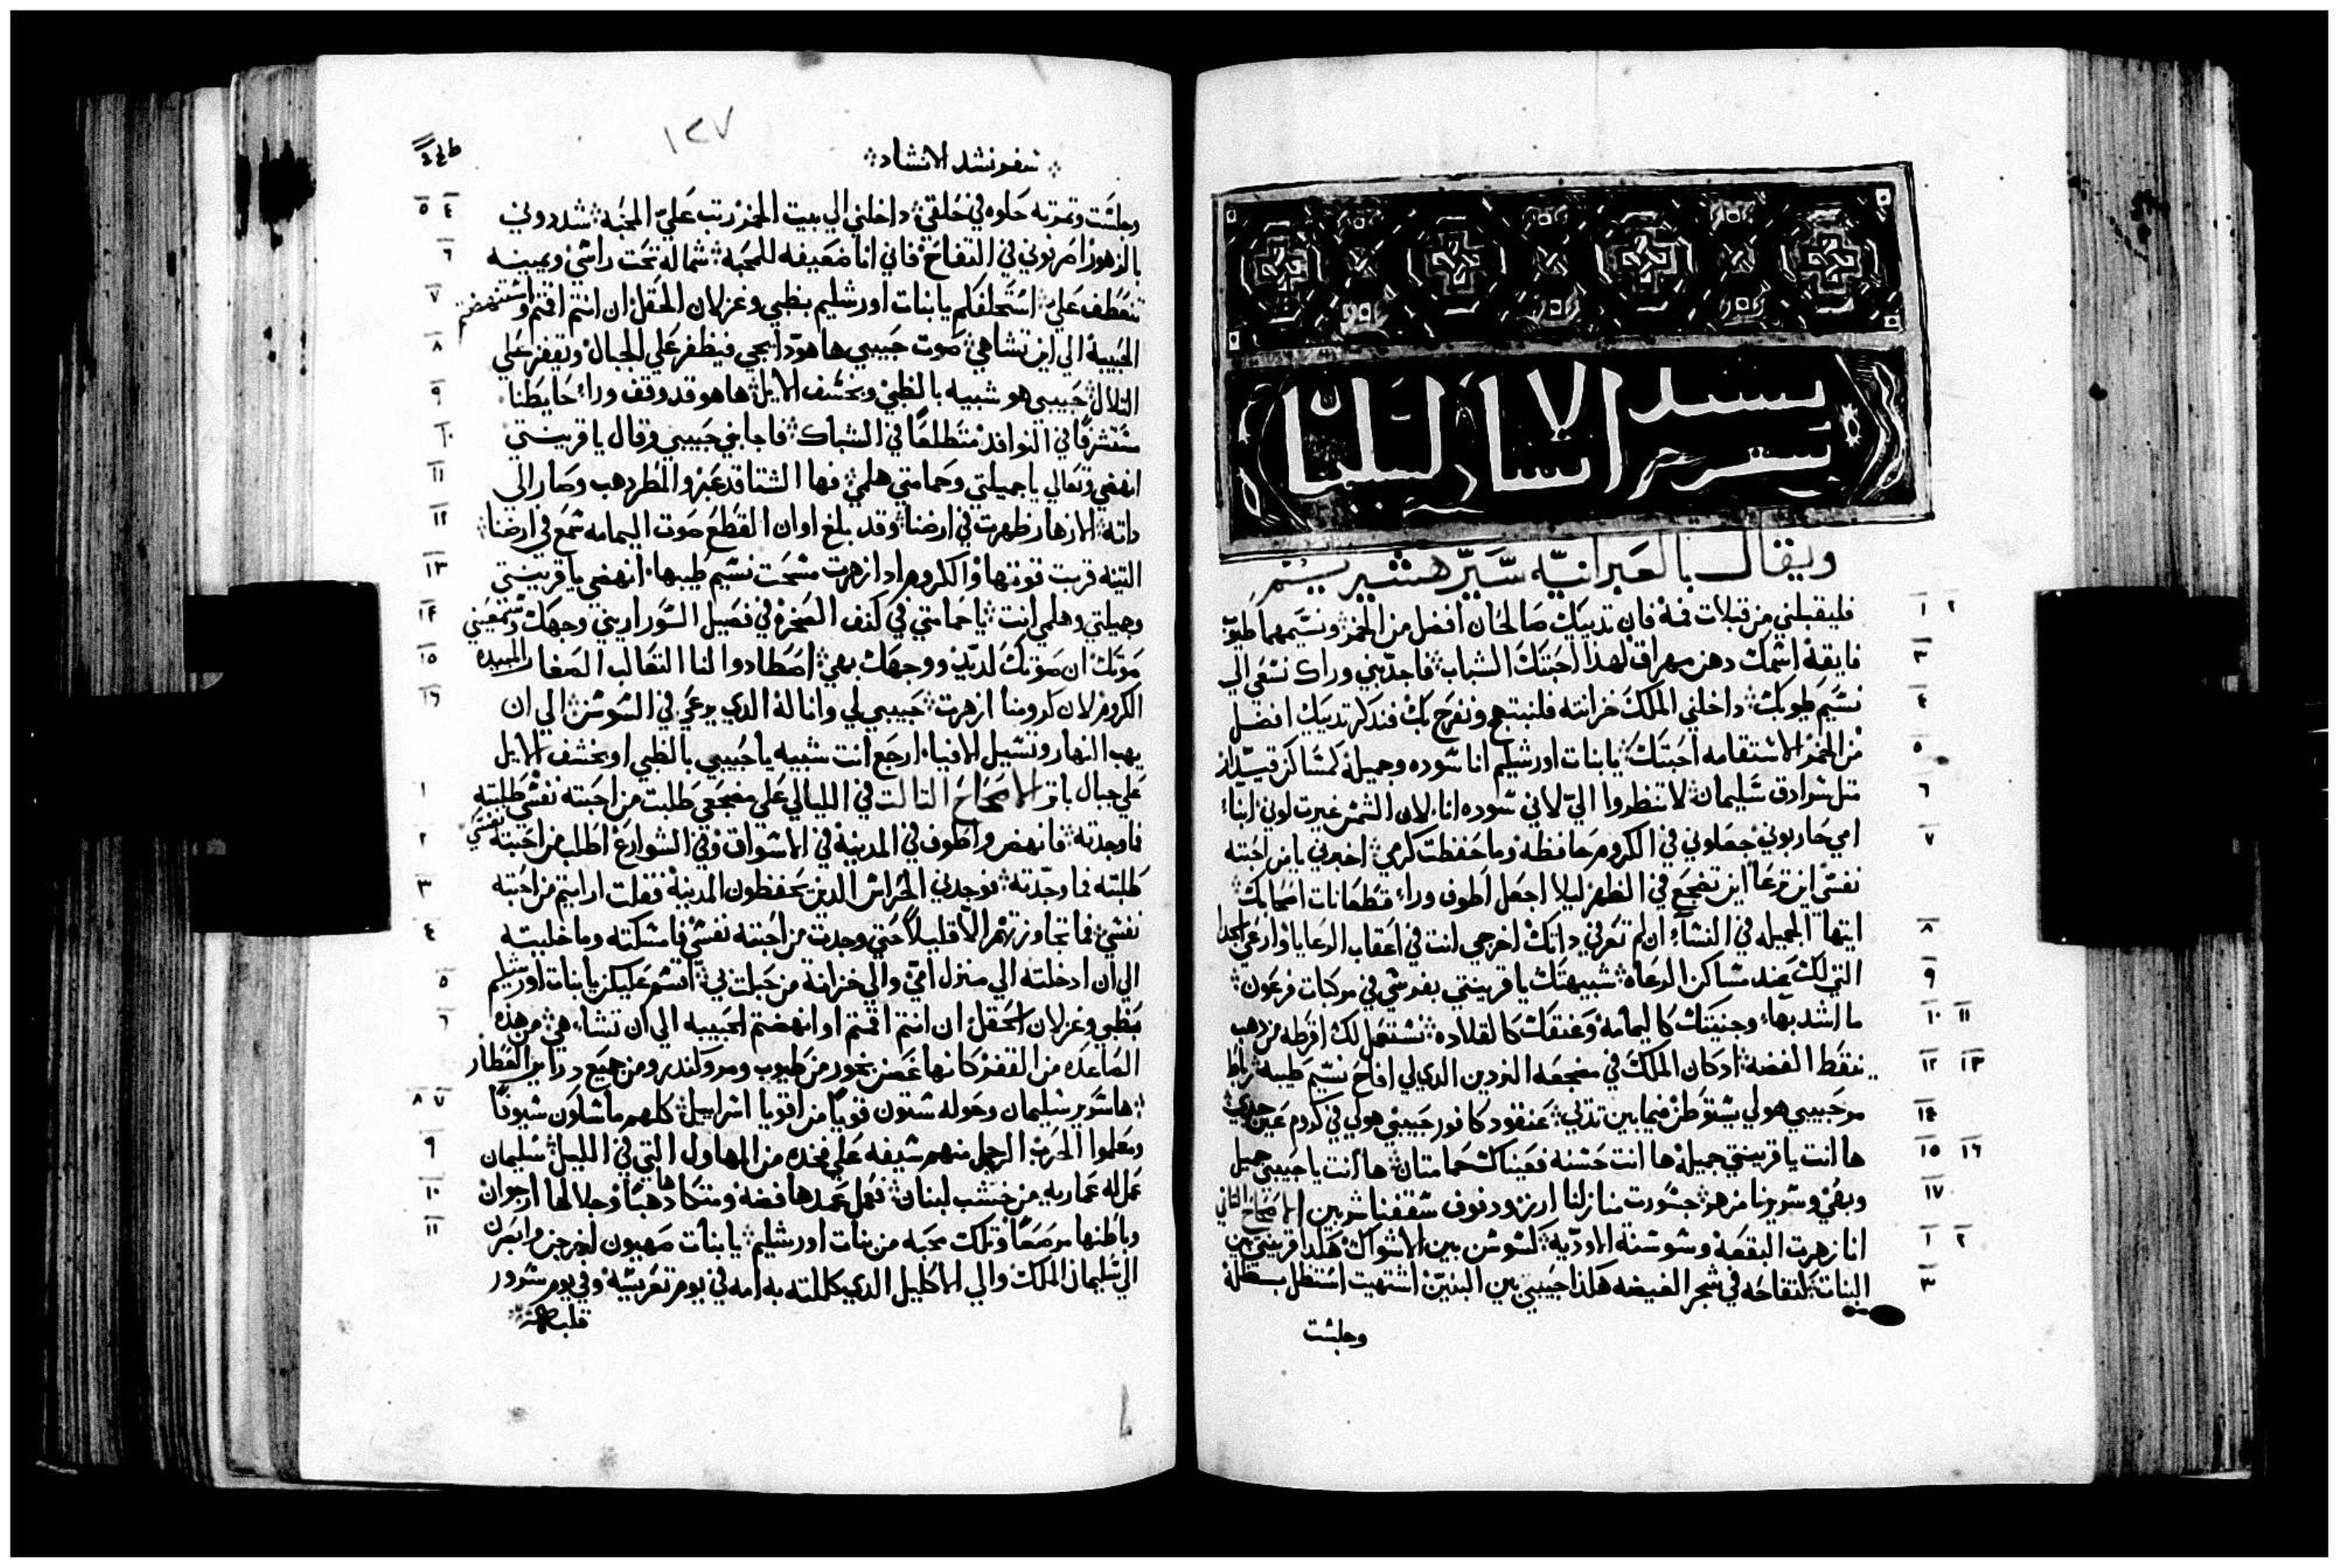 نشيد الا
سفر انشاد لسليمان
ويقال بالعبرانيه سير هشيريم
١ ٢ فليقبلني من قبلات فمه فان تدييك صالحان افضل من الخمر ونسيمهما طيوب
٣ فايقه اسمك دهن مهراق لهذا احبتك الشباب فاجدبني وراك نسعي الي
٤ نسيم طيوبك داخلني الملك خزانته فلنبتهج ونفرح بك فندكر تدييك افضل
٥ من الخمر الاستقامه احبتك يابنات اورشليم انا سوده وجميله كمساكن قيدار
٦ متل سرادق سليمان لا تنظروا اليّ لاني سوده انا لان الشمس غيرت لوني ابناء
٧ امي حاربوني جعلوني في الكروم حافظه وما حفظت كرمي اخبرني يا من احبته
نفسي اين ترعا اين تضجع في الظهر ليلا اجعل اطوف وراء قطعانات اصحابك
٨ ايتها الجميله في النساء ان لم تعرفي داتك اخرجي انت في اعقاب الرعايا وارعي الجدا
٩ التي لك عند مساكن الرعاه شبيهتك يا قرينتي بفرسي في مركبات فرعون
١٠ ١١ ما اشد بهاء وجنيتك كاليمامه وعنقك كالقلاده نستعمل لك اقرطه من دهب
١٢ ١٣ بنقط الفضه ادكان الملك في مضجعه الندين الدي لي افاح نسيم طيبه رباط
١٤ مر حبيبي هو لي يستوطن فيما بين تديي عنقود كافور حبيبي هو لي في كروم عين جدي
١٥ ١٦ ها انت يا قرينتي جميله ها انت حسنه فعيناك حمامتان ها انت يا حبيبي جميل
١٧ وبهي وسريرنا مزهر جسورت منازلنا ارز ودفوف سقفنا شربين الاصحاح التاني
١ ٢ انا زهرت البقعه وسوسنة الاوديه كسوسن بين الاشواك هكدا قرينتي بين
٣ البنات كتفاحه في شجر الغيضه هكذا حبيبي بين البنين اشتهيت استظل بظله
وجلست
١٢٧
سفر نشد الانشاد
٤ ٥ وجلست وتمرته حلوه في حلقي داخلني الي بيت الخمر رتب عليّ المحبه شددوني
٦ بالزهور اضربوني في التفاح فاني انا ضعيفه للمحبه شماله تحت راسي ويمينه
٧ تنعطف علي استحلفكم يابنات اورشليم بظبي وغزلان الحقل ان انتم اقمتم واستنهضتم
٨ الحبيبة الي اين تشا هي صوت حبيبي ها هودا يجي فيظفر علي الجبال ويقفز علي
٩ التلال حبيبي هو شبيه بالظبي وبخشف الايل ها هو قد وقف وراء حايطنا
١٠ متشرفا في النوافد متطلعا في الشباك فاجابني حبيبي وقال يا قرينتي
١١ انهضي وتعالي يا جميلتي وحمامتي هلمي فها الشتا قد عبر والمطر دهب وصار الي
١٢ داته الازهار ظهرت في ارضنا وقد بلغ اوان القطع صوت اليمامه سمع في ارضنا
١٣ التينه قربت قوتها والكروم اد ازهرت منحت نسيم طيبها انهضي يا قرينتي
١٤ وجميلتي وهلمي انت يا حمامتي في كنف الصخره في فصيل السور اريني وجهك وسمعيني
١٥ صوتك ان صوتك لديد ووجهك بهي اصطادوا لنا التعالب الصغار المبيده
١٦ الكروم لان كرومنا ازهرت حبيبي لي وانا له الدي يرعي في السوسن الي ان
يهب النهار وتسيل الافياء ارجع انت شبيه يا حبيبي بالظبي او بخشف الايل
١ علي جبال باتر الاصحاح التالت في الليالي علي مضجعي طلبت من احبته نفسي طلبته
٢ فما وجدته فانهض واطوف في المدينة في الاسواق وفي الشوارع اطلب من احبته نفسي
٣ طلبته فما وجدته فوجدني الحراس الدين يحفظون المدينة فقلت ارايتم من احبته
٤ نفسي فما تجاوزتهم الا قليلا حتي وجدت من احبته نفسي فامسكته وما خليته
٥ الي ان ادخلته الي منزل امي والي خزانة من حبلت بي اقسم عليكن يابنات اورشليم
٦ بظبي وغزلان الحقل ان انتم اقمتم او انهضتم الحبيبه الي ان تشاء هي من هذه
الصاعده من القفر كانها غصن بخور من طيوب ومر وكندر ومن جميع دراير العطار
٧ ٨ ها سرير سليمان وحوله ستون قويا من اقويا اسراييل كلهم ماسكون سيوفا
٩ ومعلموا الحرب الرجل منهم سيفه علي فخده من المهاول التي في الليل سليمان
١٠ عمل له عماريه من خشب لبنان فعمل عمدها فضه ومتكاها دهبا وجلالها ارجوان
١١ وباطنها مرصعا وتلك محبه من بنات اورشليم يا بنات صهيون اخرجن وابصرن
الي سليمان الملك والي الاكليل الدي كللته به امه في يوم تعريسه وفي يوم سرور
قلبه